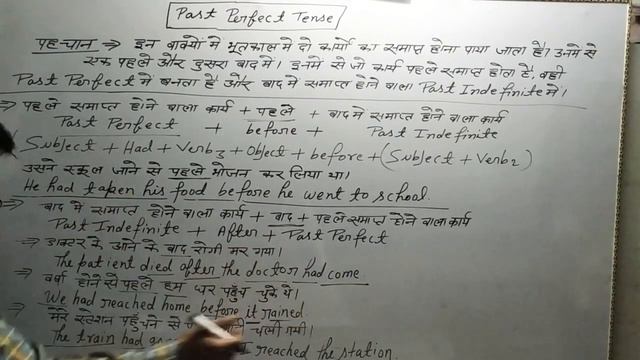 Past Perfect Tense
पहचान ⇒ इन वाक्यों में भूतकाल मे दो कार्यो का समाप्त होना पाया जाता है। उनमे से
एक पहले और दुसरा बाद में। इनमें से जो कार्य पहले समाप्त होता है, वही
Past Perfect में बनता है और बाद में समाप्त होने वाला Past Indefinite में।
⇒ पहले समाप्त होने वाला कार्य + पहले + बाद में समाप्त होने वाला कार्य
Past Perfect + before + Past Indefinite
Subject + Had + Verb3 + Object + before + (Subject + Verb2)
उसने स्कूल जाने से पहले भोजन कर लिया था।
He had taken his food before he went to school.
⇒ बाद मे समाप्त होने वाला कार्य + बाद + पहले समाप्त होने वाला कार्य
Past Indefinite + After + Past Perfect
⇒ डाक्टर के आने के बाद रोगी मर गया।
The patient died after the doctor had come.
⇒ वर्षा होने से पहले हम घर पहुँच चुके थे।
We had reached home before it rained.
⇒ मेरे स्टेशन पहुँचने से चली गयी।
The train had I reached the station.